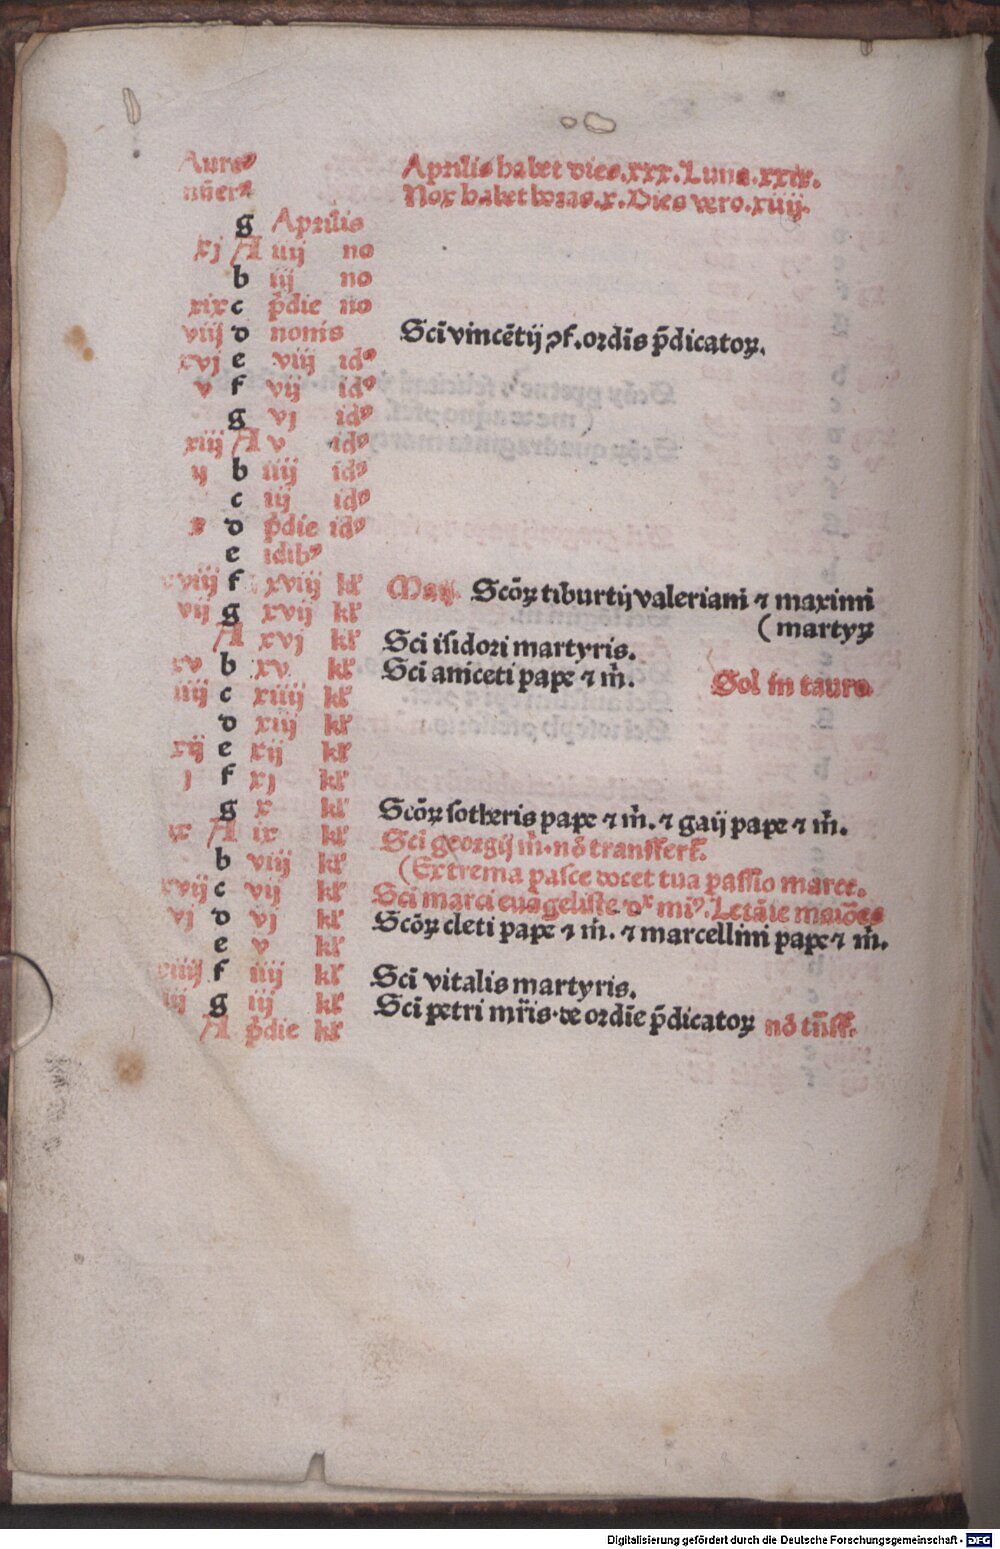 Aureꝰ Aprilis habet dies.xxx.Luna.xxix.
nūerꝰ Nox habet horas.x.Dies vero.xiiij.
g Aprilis
xj A iiij no
b iij no
xix c p̄die no
viij d nonis Sc̄i vincētij ꝯf.ordīs p̄dicatoꝝ.
xvj e viij idꝰ
v f vij idꝰ
g vj idꝰ
xiij A v idꝰ
ij b iiij idꝰ
c iij idꝰ
x d p̄die idꝰ
e idibꝰ
xviij f xviij kl' Maij. Scōꝝ tiburtij valeriani ⁊ maximi
vij g xvij kl' (martyꝝ
A xvj kl' Sc̄i isidori martyris.
xv b xv kl' Sc̄i aniceti pape ⁊ m̄. Sol in tauro
iiij c xiiij kl'
d xiij kl'
xij e xij kl'
j f xj kl'
g x kl' Scōꝝ sotheris pape ⁊ m̄. ⁊ gaij pape ⁊ m̄.
ix A ix kl' Sc̄i georgij m̄. nō transfert.
b viij kl' (Extrema pasce docet tua passio marce.
xvij c vij kl' Sc̄i marci euāgeliste dˣ miꝰ. Letāie maiōes
vj d vj kl' Scōꝝ cleti pape ⁊ m̄. ⁊ marcellini pape ⁊ m̄.
e v kl'
xiiij f iiij kl' Sc̄i vitalis martyris.
iij g iij kl' Sc̄i petri mr̄is. de ordīe p̄dicatoꝝ nō tn̄sf.
A p̄die kl'
Digitalisierung gefördert durch die Deutsche Forschungsgemeinschaft - DFG